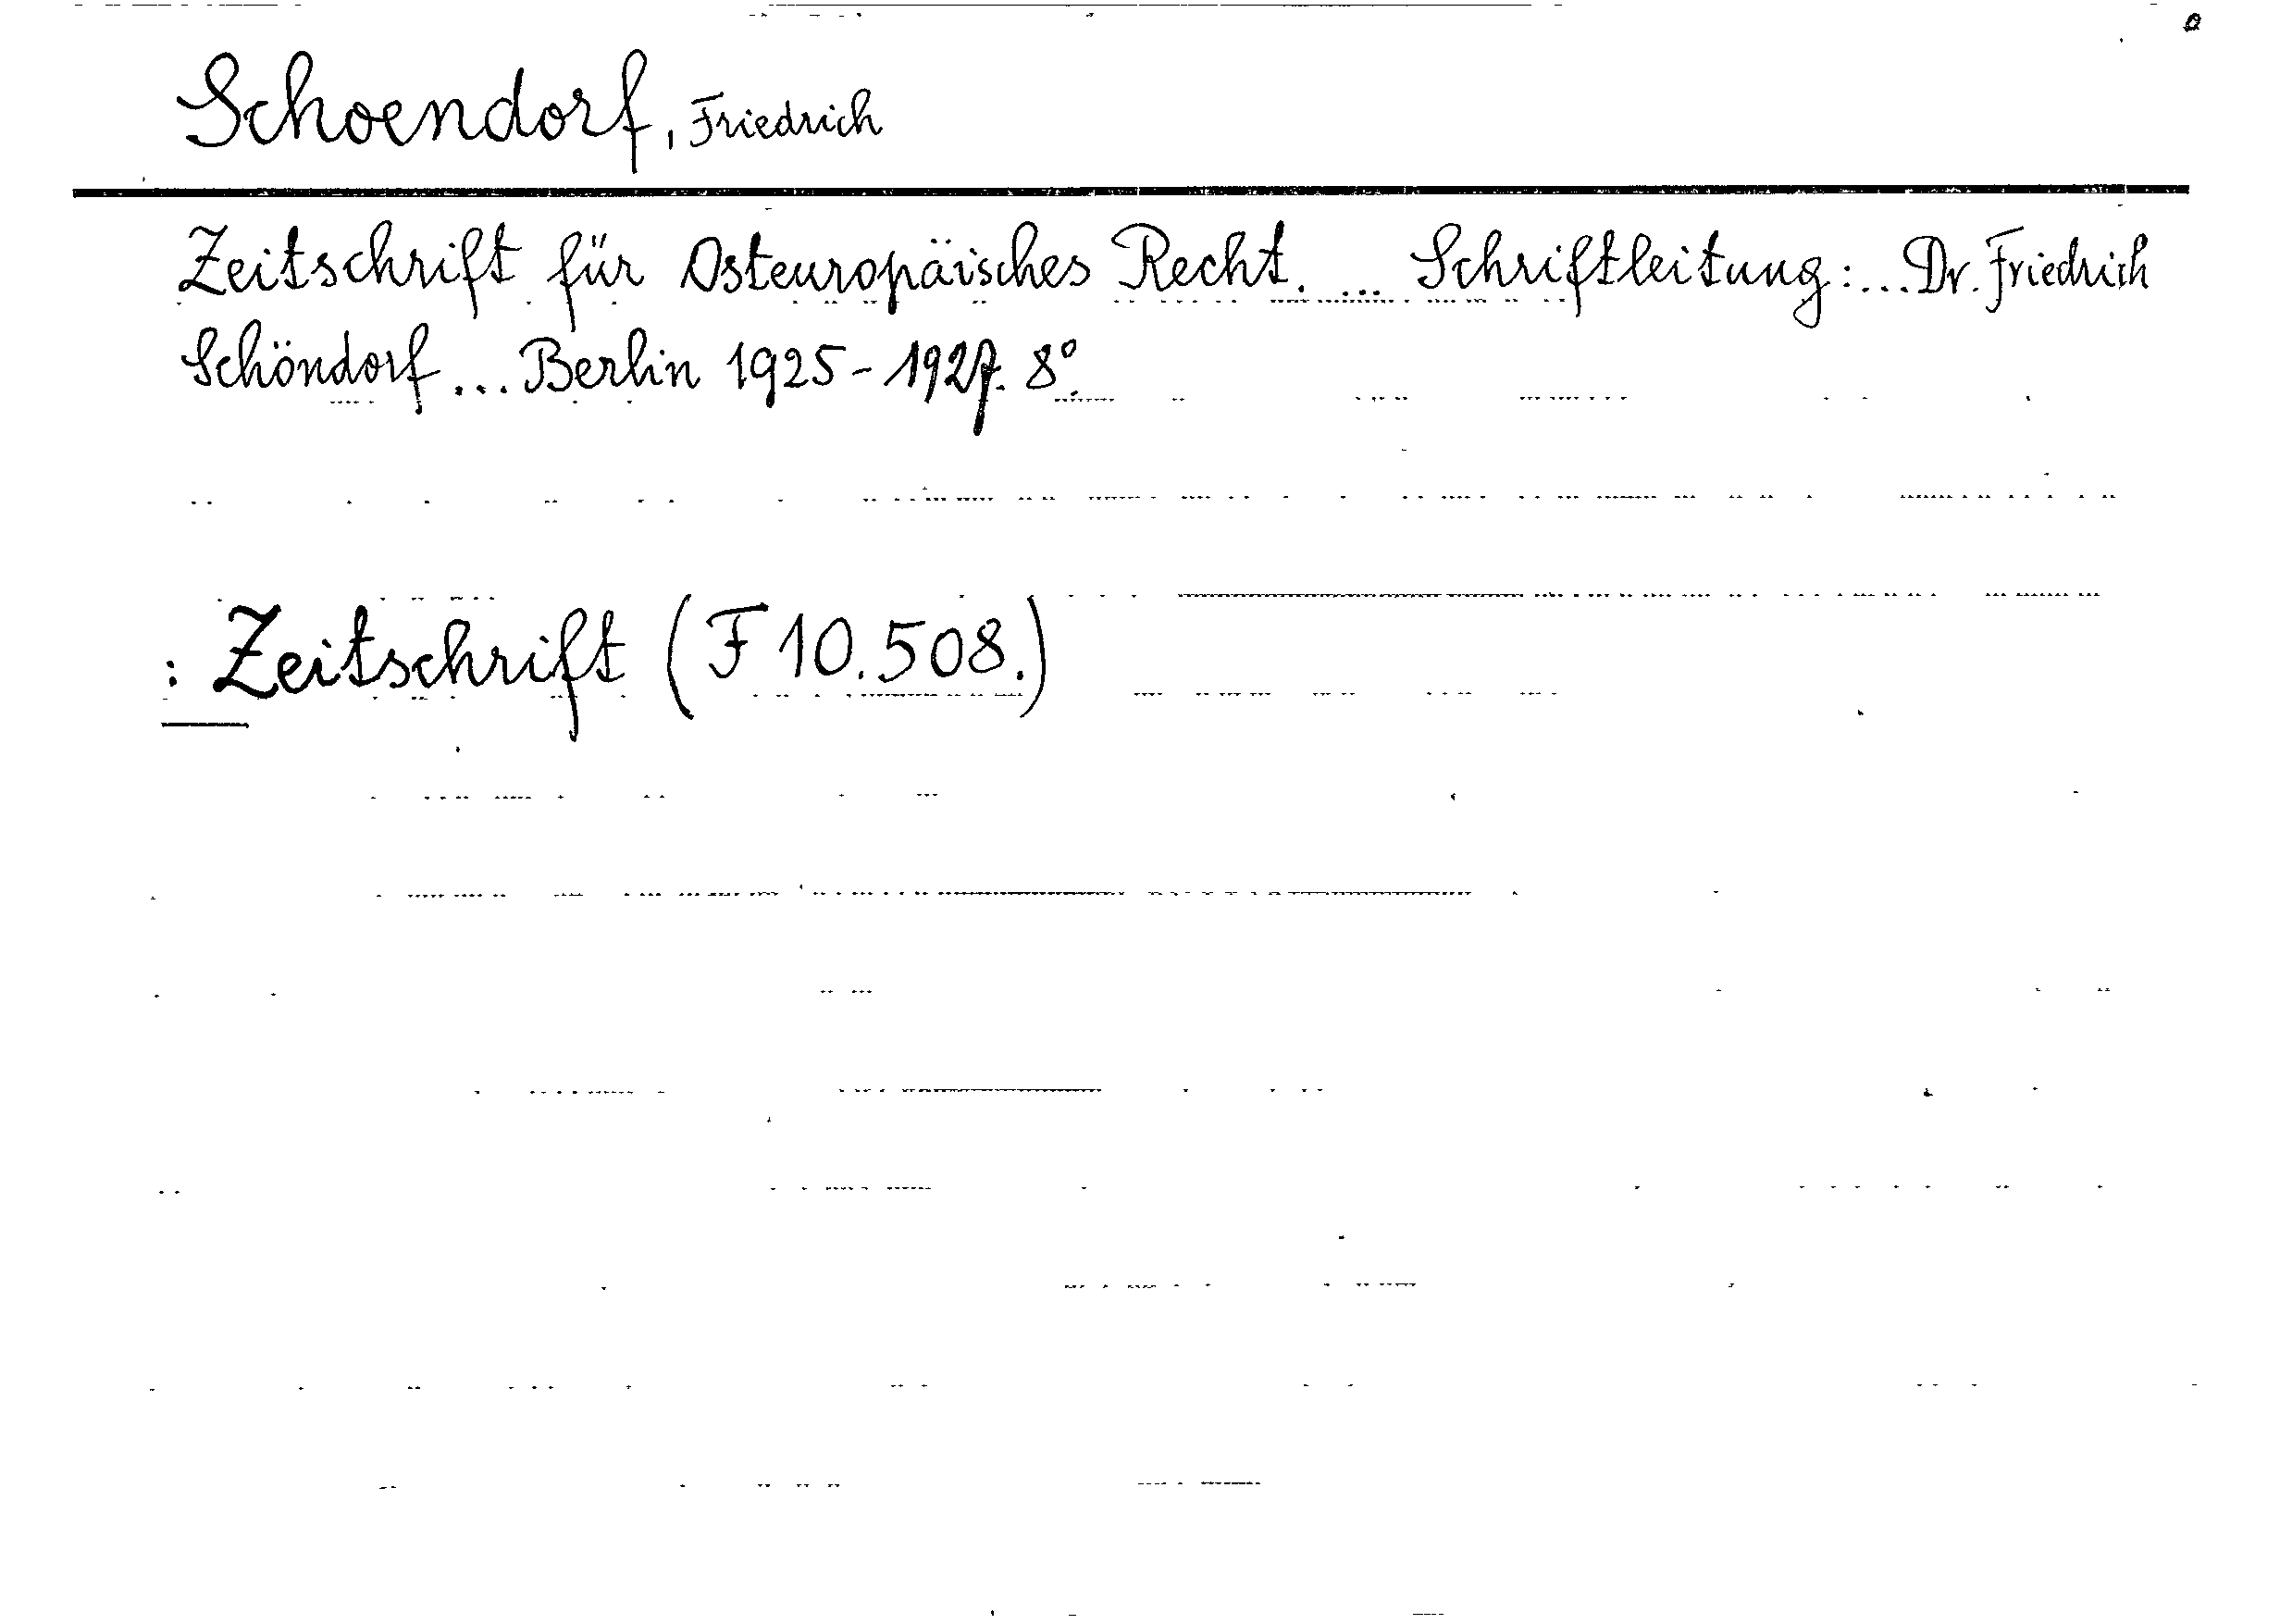 Schoendorf, Friedrich
Zeitschrift für Osteuropäisches Recht. ... Schriftleitung: ... Dr. Friedrich
Schöndorf ... Berlin 1925-1927. 8°.
: Zeitschrift (F 10.508.)